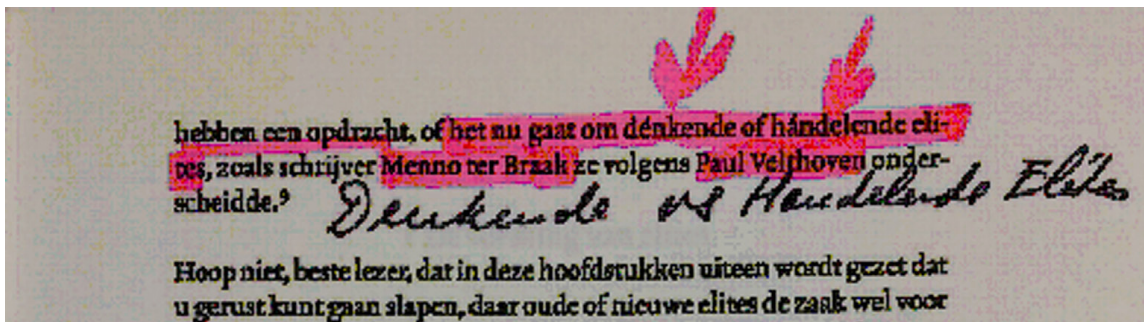 hebben een opdracht, of het nu gaat om dénkende of hándelende eli-
tes, zoals schrijver Menno ter Braak ze volgens Paul Velthoven onder-
scheidde.⁹
Denkende vs Handelende Elites
Hoop niet, beste lezer, dat in deze hoofdstukken uiteen wordt gezet dat
u gerust kunt gaan slapen, daar oude of nieuwe elites de zaak wel voor